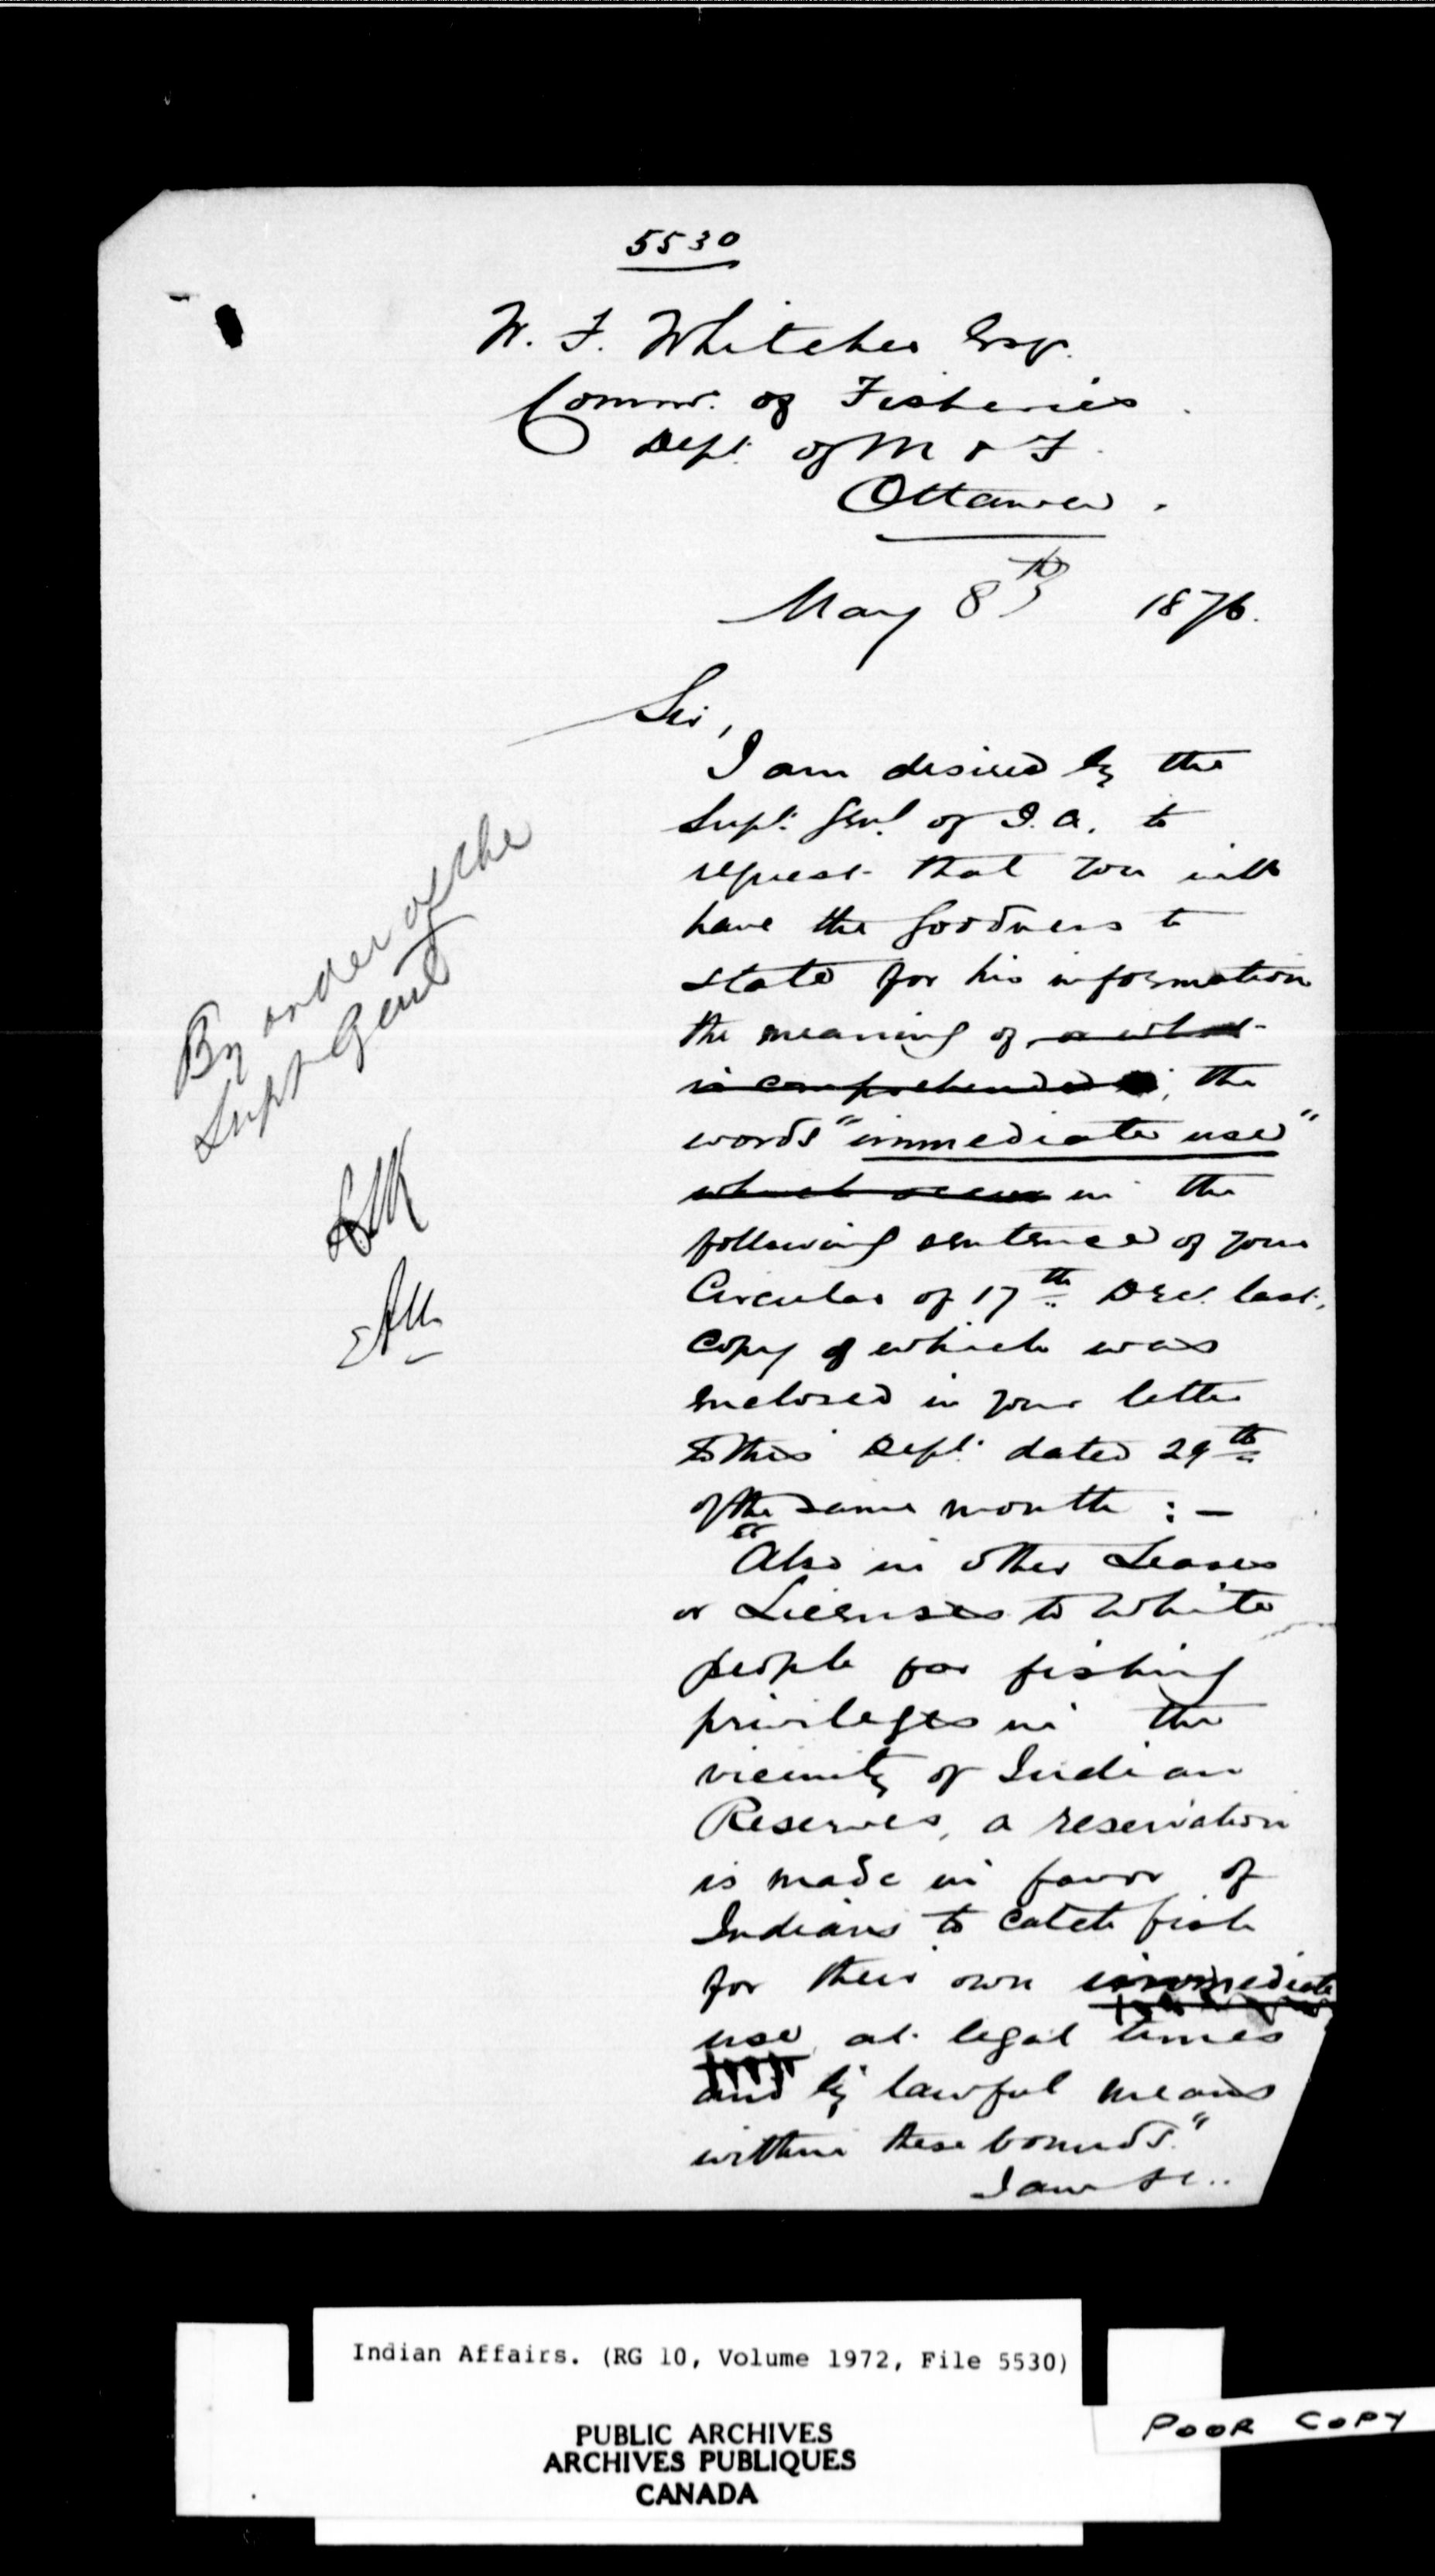 5530
W. F. Whitcher Esqr.
Commr. of Fisheries.
Dept. of M & F.
Ottawa.
May 8th 1876.
Sir,
I am desired by the
Supt. Genl. of I. A. to
request that you will
have the goodness to
state for his information
the meaning of, or what
is comprehended, the
words "immediate use"
which occur in the
following sentence of your
Circular of 17th Decr. last,
copy of which was
enclosed in your letter
to this Dept. dated 29th
of the same month :—
"Also in other Leases
or Licenses to White
people for fishing
privileges in the
vicinity of Indian
Reserves, a reservation
is made in favor of
Indians to catch fish
for their own immediate
use, at legal times
and by lawful means
within these bounds."
I am &c..
By order of the
Supt Genl
Indian Affairs. (RG 10, Volume 1972, File 5530)
PUBLIC ARCHIVES
ARCHIVES PUBLIQUES
CANADA
POOR COPY